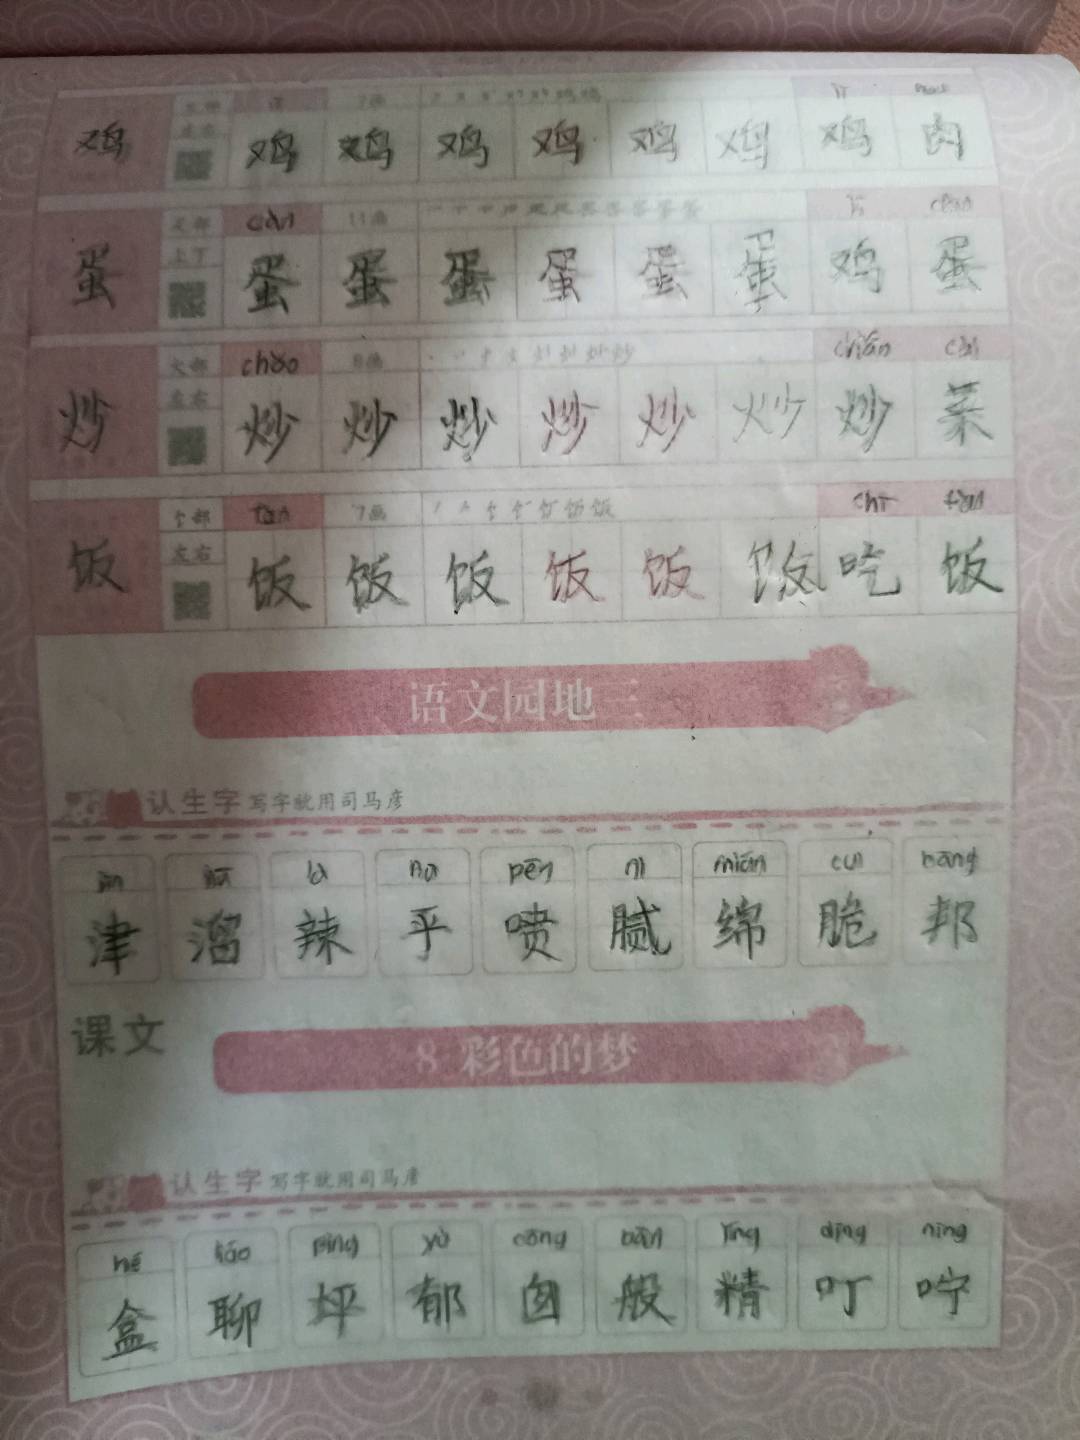 7画
鸡 左右 鸡 鸡 鸡 鸡 鸡 鸡 鸡 肉
dàn 11画
蛋 上下 蛋 蛋 蛋 蛋 蛋 蛋 鸡 蛋
火部 chǎo 8画
炒 左右 炒 炒 炒 炒 炒 炒 炒 菜
饣部 fàn 7画 chī fàn
饭 左右 饭 饭 饭 饭 饭 饭 吃 饭
语文园地三
认生字 写字就用司马彦
là pēn nì mián cuì bāng
津 溜 辣 乎 喷 腻 绵 脆 邦
课文
8 彩色的梦
认生字 写字就用司马彦
hé liáo píng yù cōng bān jīng dīng níng
盒 聊 坪 郁 囱 般 精 叮 咛